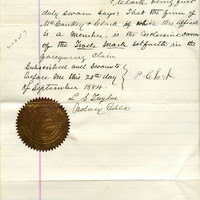 being first
duly sworn says: That the firm of
McConkey & Clark of which this affiant
is a member, is the exclusive owner
of the Trade Mark setforth in the
foregoing claim
Subscribed and sworn to
before me this 20th day
of September 1884
L. S. Taylor
Notary Public